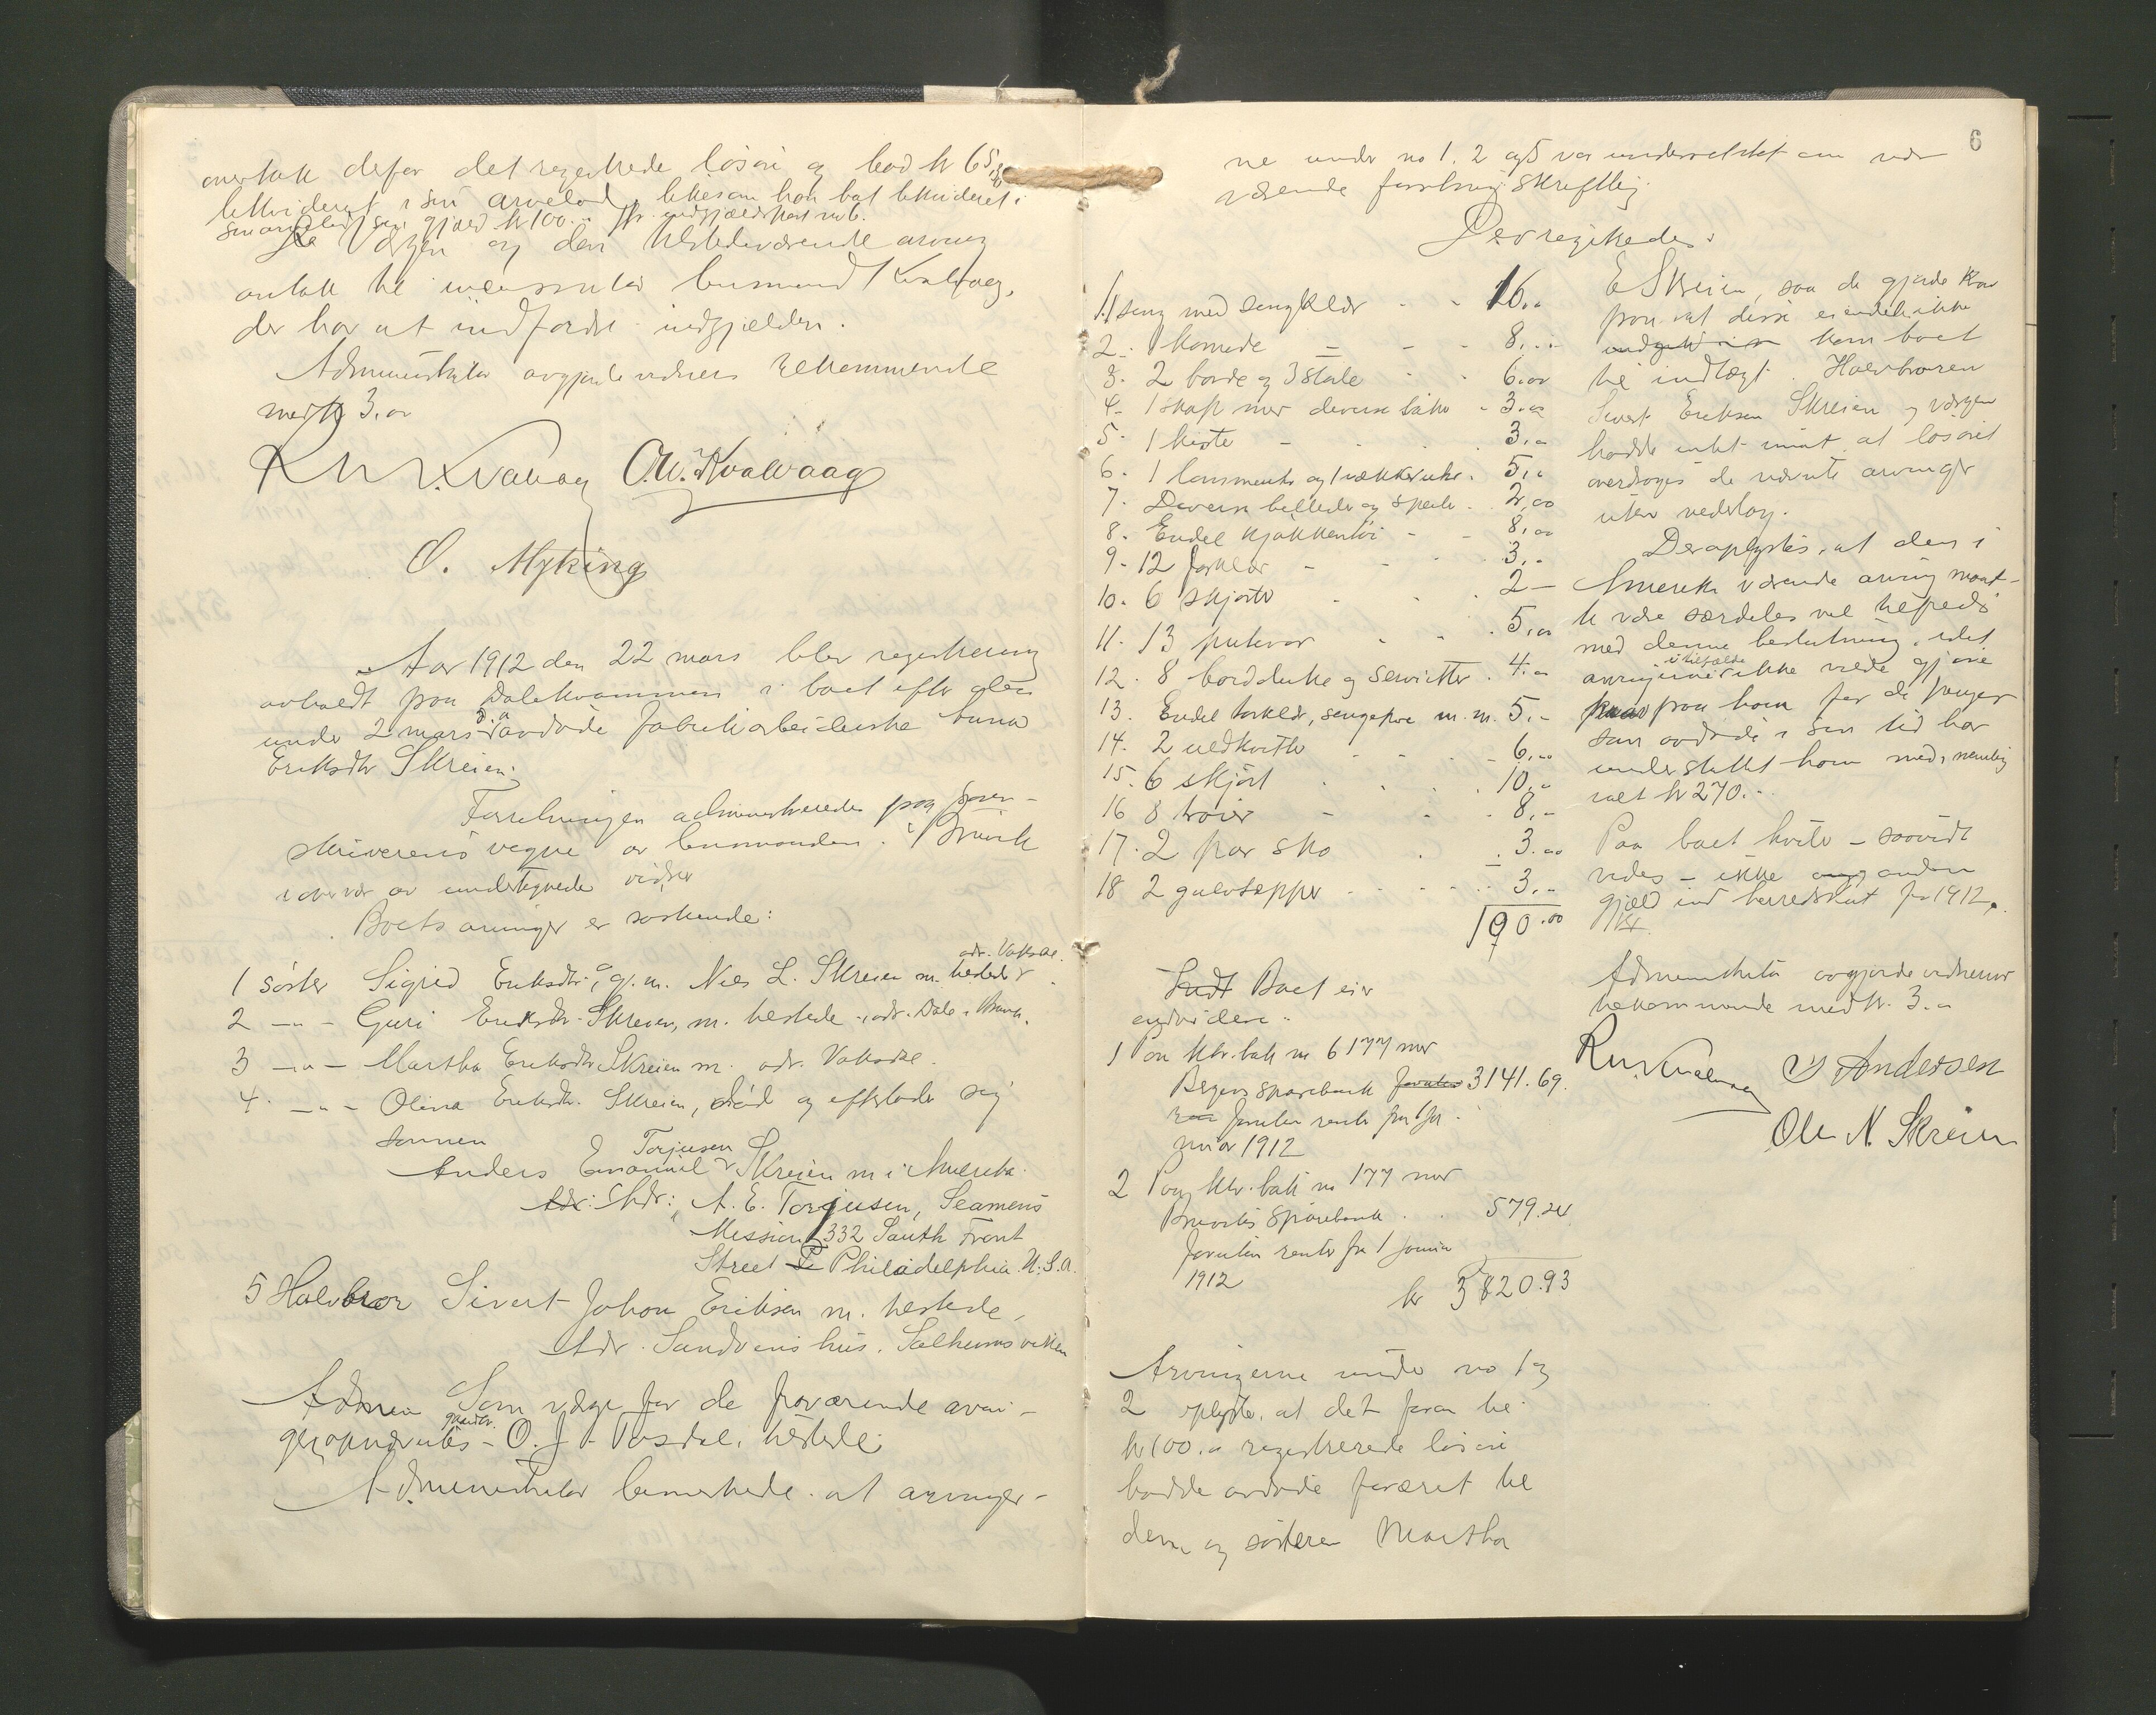 overtok derfor det registrerede løsøre og bød kr 65,50
likvideret i sin arvelod, likesom han bøt likvideret i
sin arvelod sin gjæld kr 100.00 jfr. utgjældspost no 6.
Værgen og den tilstedeværende arving
antok til incassator lensmand Kvalvaag,
der har at indfordre utgjælden.
Administrator avgjorde vidners tilkommende
med kr 3.00
Kvalvaag O.W. Kvalvaag
O. Myking
Aar 1912 den 22 mars blev registrering
avholdt paa Dalekvammen i boet efter den
under 2 mars d.a. avdøde fabrikarbeiderske Anna
Eriksdtr Skreien.
Forretningen administreredes paa soren-
skriverens vegne av lensmanden i Bruvik
i overvær av undertegnede vidner
Boets arvinger er søskende:
1 søster Sigrid Eriksdtr, g. m. Nils L. Skreien m. herstede adr. Vaksdal.
2 -"- Guri Eriksdtr. Skreien, m. herstede, adr. Dale i Bruvik.
3 -"- Martha Eriksdtr Skreien m. adr. Vaksdal.
4. -"- Olina Eriksdtr. Skreien, død og efterlader sig
sønnen
Anders Emanuel Torjusen Skreien m i Amerika.
Adr: Adr: A. E. Torjusen, Seamens
Mission 1332 South Front
Street Philadelphia U.S.A.
5 Halvbror Sivert Johan Eriksen m. herstede,
Adr. Sandvens hus, Salhusviken
Admin Som værge for de fraværende arvin-
ger opnævntes gaardbr. O. J. Tosdal, herstede.
Administrator bemerkede at arvinger-
6
ne under no 1. 2 og 5 var underrettet om nær
værende forretning skriftlig.
Der registredes:
1. 1 seng med sengklær - - 16.00
2. 1 komode - - - 8.00
3. 2 borde og 3 stole - - 6.00
4. 1 skap med diverse saker - 3.00
5. 1 kiste - - - 3.00
6. 1 lommeur og 1 vækkerur - 5.00
7. Diverse billeder og speile - 2.00
8. Endel kjøkkentøi - - 8.00
9. 12 forklær - - - 3.00
10. 6 skjorter - - - 2 -
11. 13 putevar - - - 5.00
12. 8 bordduke og servietter - 4.00
13. Endel tørklær, sengetæ m. m. 5.-
14. 2 uldkvitler - - - 6.00
15. 6 skjørt - - - 10.00
16 8 trøier - - - 8.-
17. 2 par sko - - 3.00
18 2 gulvtæpper - - - 3.-
190.00
Boet eier
endvidere:
1 Paa ktr. bok no 6177 med
Bergens sparebank 3141.69.
foruten rente fra 1 ja-
nuar 1912
2 Paa ktr. bok no 177 med
Bruviks Sparebank - - 579.24
foruten rente fra 1 januar
1912
kr 3820.93
Arvingerne under no 1 og
2 oplyste, at det foran til
kr 100.00 registrerede løsøre
hadde avdøde foræret til
dem og søsteren Martha
E Skreien, saa de gjorde krav
paa at disse eiendele ikke
kom boet
til indtægt. Halvbroren
Sivert Eriksen Skreien og værgen
hadde intet imot at løsøret
overdroges de nævnte arvinger
uten vederlag.
Der oplystes, at den i
Amerika værende arving maat-
te være særdeles vel tilfreds
med denne beslutning, idet
arvingerne i tilfælde ikke vilde gjøre
krav paa ham for de penger
som avdøde i sin tid har
understøttet ham med, nemlig
ialt kr 270.-
Paa boet hviler - saavidt
vides - ikke anden
gjæld end herredsskat for 1912.
Administrator avgjorde vidnernes
tilkommende med kr. 3.00
Kvalvaag Andersen
Ole N. Skreien